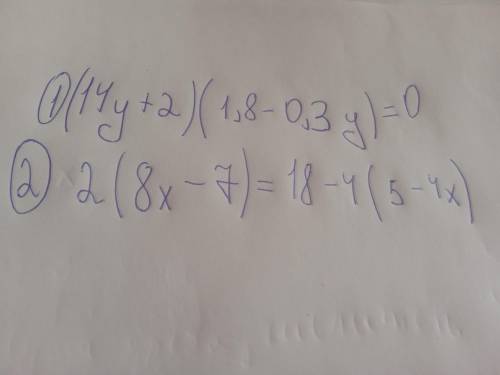 ① (14y + 2)(1,8 - 0,3y) = 0
② 2(8x - 7) = 18 - 4(5 - 4x)